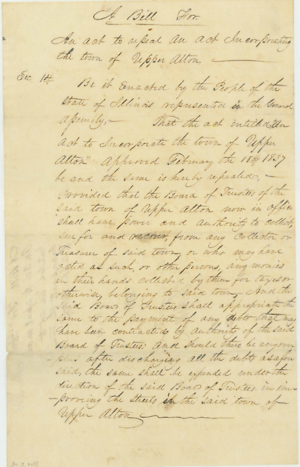 A Bill For
An act to repeal an act Incorporating
the town of Upper Alton
Sec. 1st.
Be it Enacted by the People of the
State of Illinois represented in the General
Assembly — That the act entitled An
Act to Incorporate the town of Upper
Alton Approved February the 1837
be and the same is hereby repealed, —
Provided that the Board of Trustees of the
said town of Upper Alton now in office
shall have power and Authority to collect,
sue for and from any Collector or
Treasurer of said town, or who may have
acted as such, or other persons, any monies
in their hands collected by them for taxes or
otherwise belonging to said town, And the
said Board of Trustees shall appropriate the
same to the payment of any debt that may
have been contracted by authority of the said
Board of Trustees And should there be any
after discharging all the debt as afore
said, the same shall be expended under the
direction of the said Board of Trustees in im-
-proving the streets in the said town of
Upper Alton